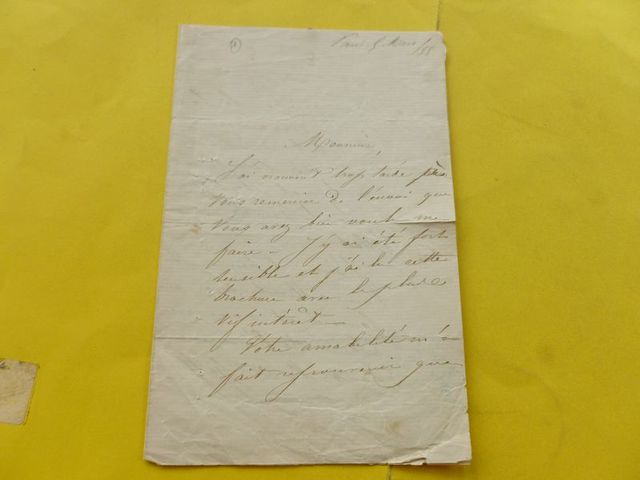 ①
Paris 5 Mars /85
Monsieur,
J'ai vraiment trop tardé à
vous remercier de l'envoi que
vous avez bien voulu me
faire - J'y ai été fort
sensible et j'ai lu cette
brochure avec le plus
vif intérêt -
Votre amabilité m'a
fait ressouvenir que